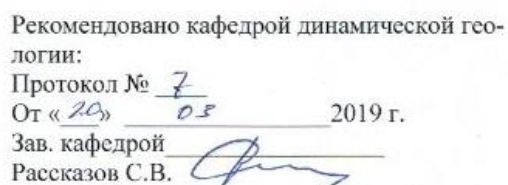 Рекомендовано кафедрой динамической гео-
логии:
Протокол № 7
От « 20 » 03 2019 г.
Зав. кафедрой
Рассказов С.В.